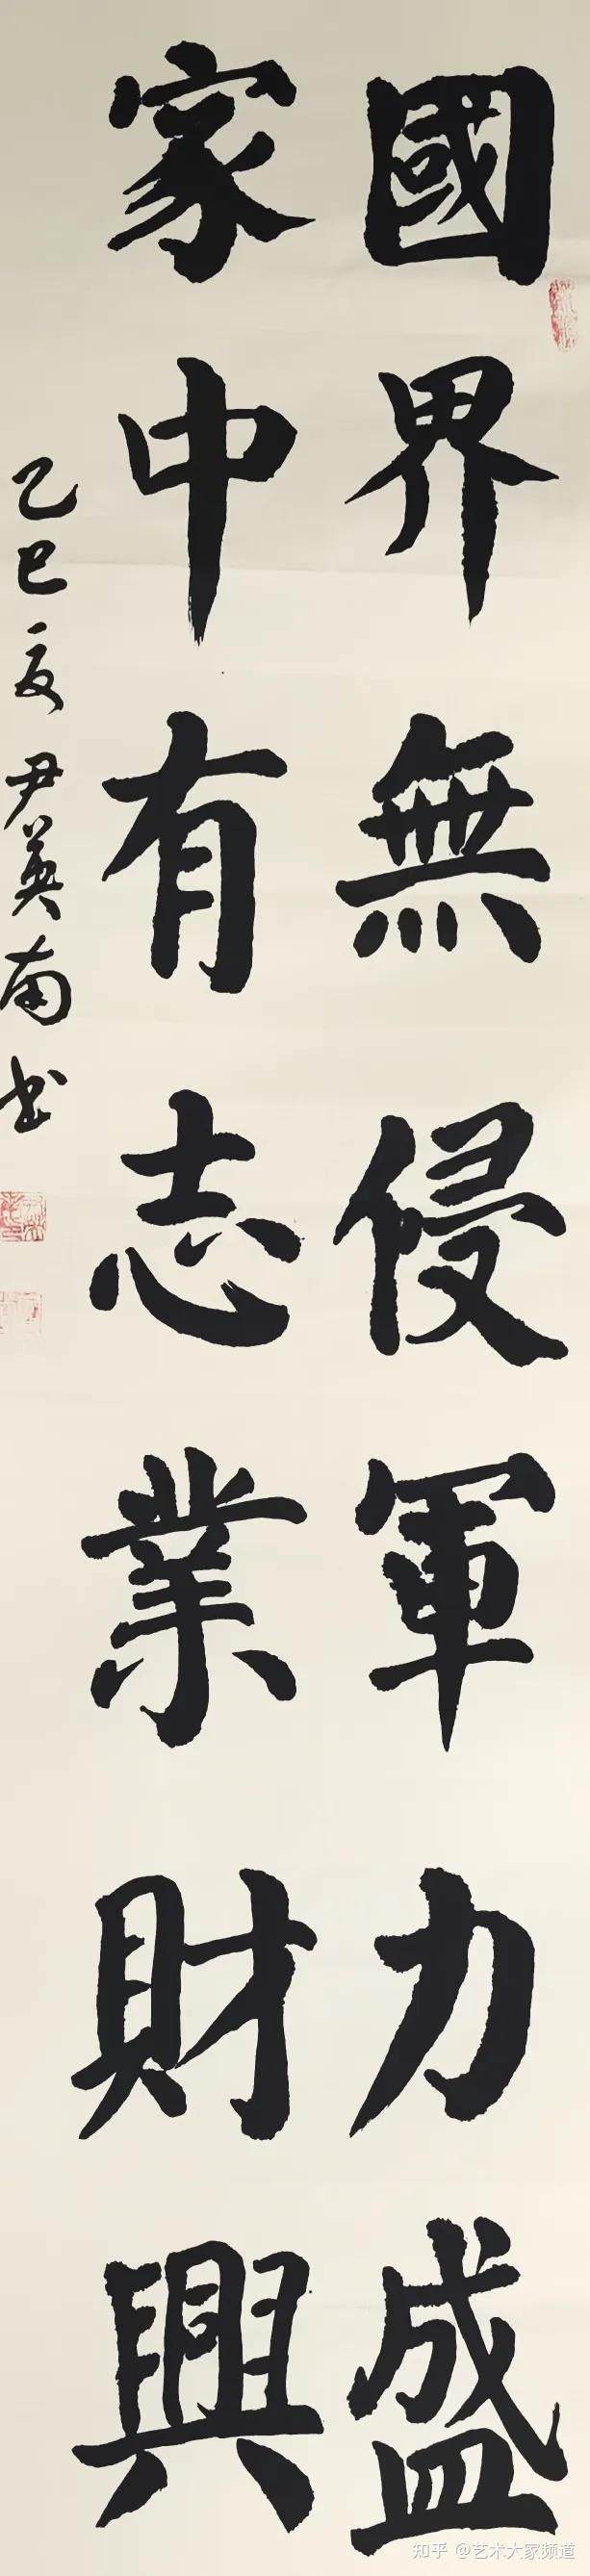 國界無侵軍力盛
家中有志業財興
乙巳夏尹英南书
知乎 @艺术大家频道